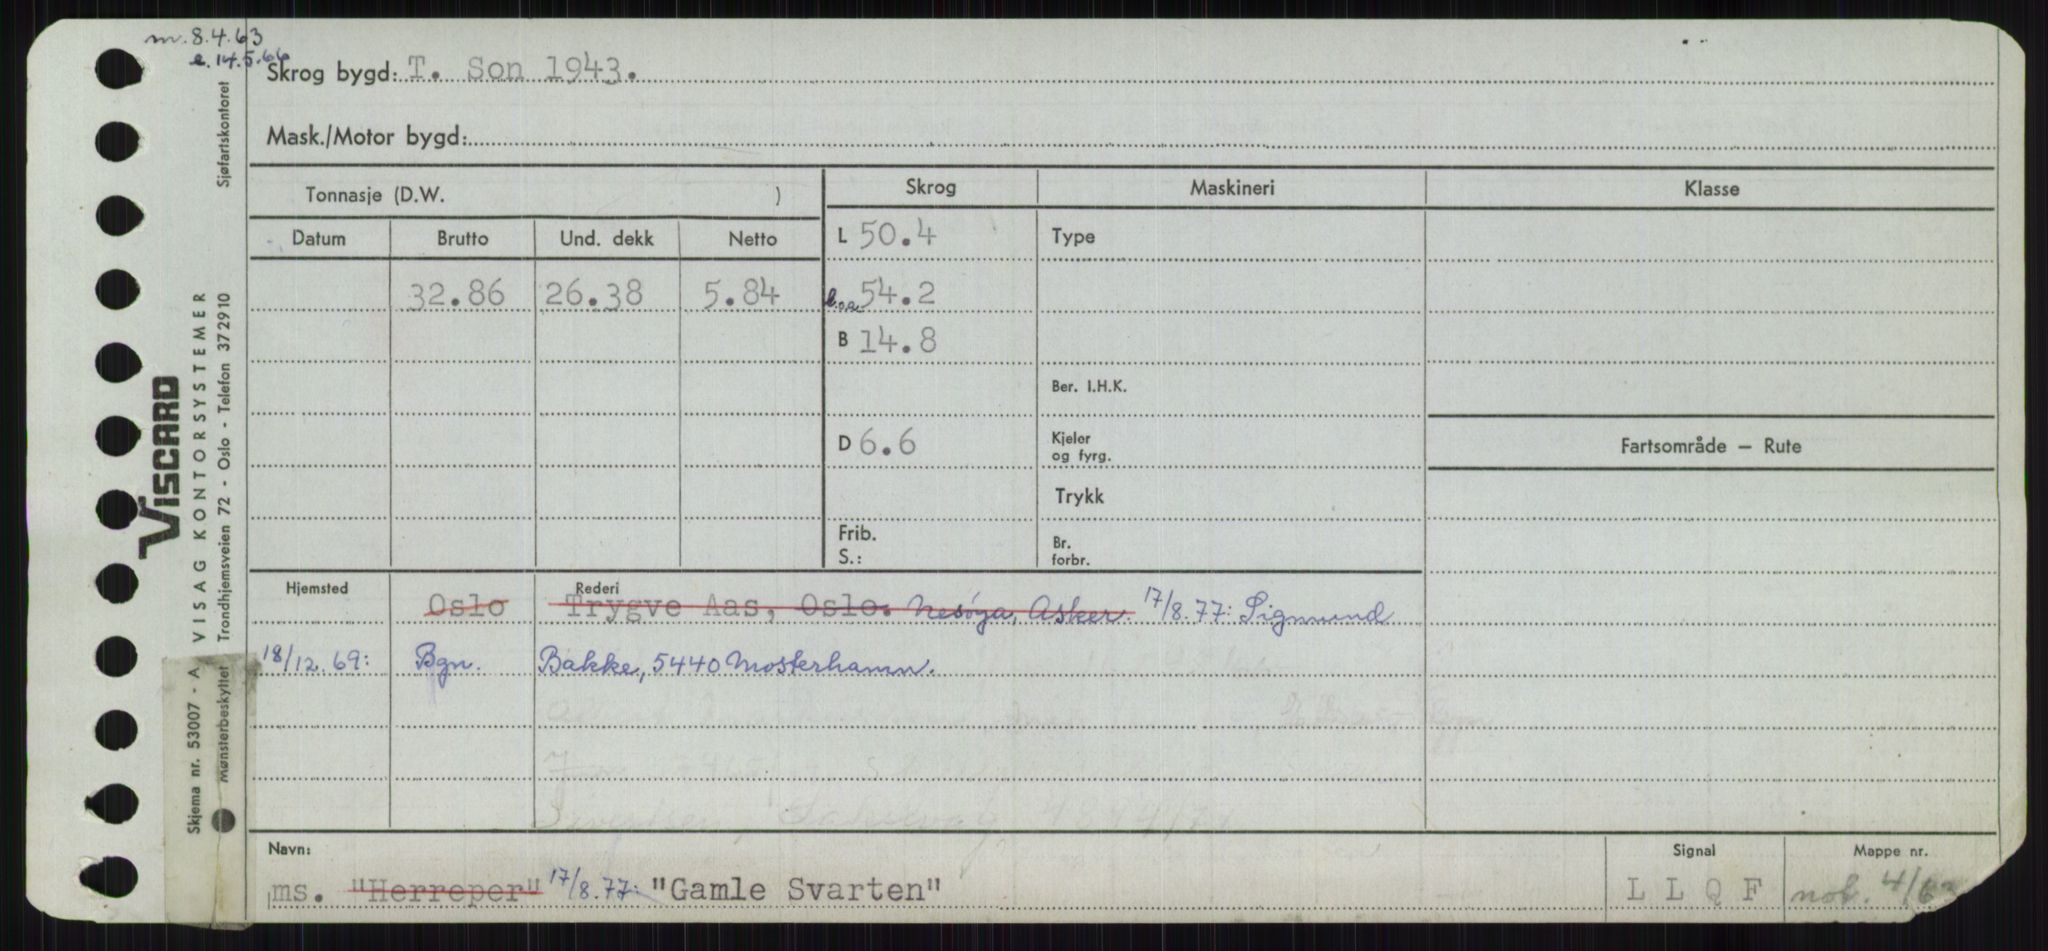 m. 8.4.63
e. 14.5.66
Skrog bygd: T. Son 1943.
Mask./Motor bygd:
Tonnasje (D.W. )
Skrog Maskineri Klasse
Datum Brutto Und. dekk Netto
L 50.4 Type
32.86 26.38 5.84 l.oa 54.2
B 14.8
Ber. I.H.K.
D 6.6 Kjeler og fyrg.
Fartsområde — Rute
Trykk
Frib. S.: Br. forbr.
Hjemsted Rederi
Oslo Trygve Aas, Oslo. Nesøya, Asker. 17/8.77: Sigmund
18/12.69: Bgn. Bakke, 5440 Mosterhamn.
Navn: Signal Mappe nr.
ms. "Herreper" 17/8.77: "Gamle Svarten" L L Q F
VISCARD
VISAG KONTORSYSTEMER
Trondhjemsveien 72 - Oslo - Telefon 372910
Sjøfartskontoret
Skjema nr. 53007 - A
Mønsterbeskyttet